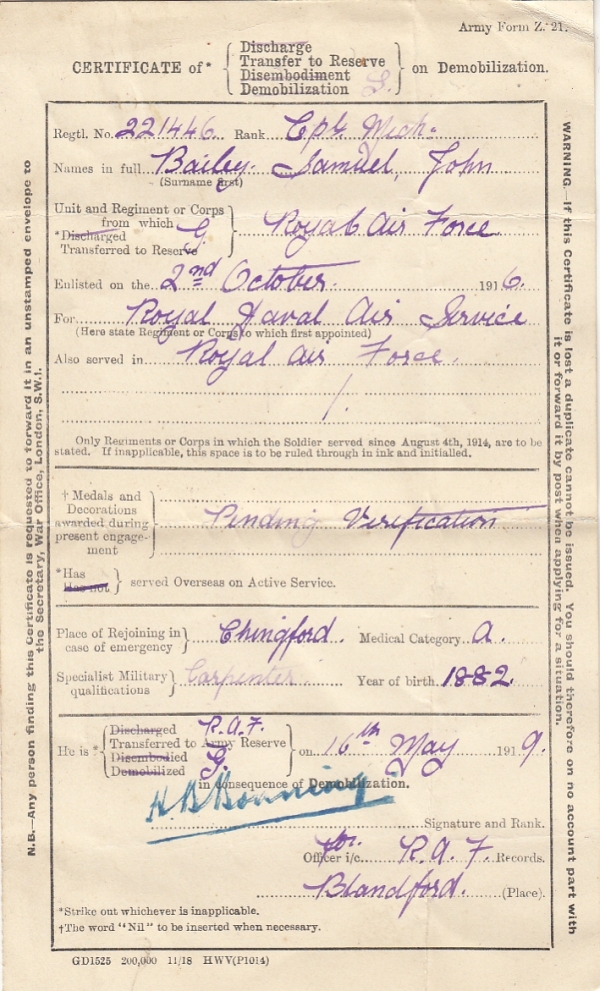 Army Form Z. 21.
CERTIFICATE of*
Discharge
Transfer to Reserve
Disembodiment
Demobilization
on Demobilization.
Regtl. No. 221446 Rank Cpt. Mech.
Names in full Bailey. Samuel, John
(Surname first)
Unit and Regiment or Corps
from which
*Discharged
Transferred to Reserve
G. Royal Air Force
Enlisted on the 2nd October 1916.
For Royal Naval Air Service
(Here state Regiment or Corps to which first appointed)
Also served in Royal Air Force.
Only Regiments or Corps in which the Soldier served since August 4th, 1914, are to be
stated. If inapplicable, this space is to be ruled through in ink and initialled.
† Medals and
Decorations
awarded during
present engage-
ment
Pending Verification
*Has
Has not
served Overseas on Active Service.
Place of Rejoining in
case of emergency
Chingford. Medical Category A.
Specialist Military
qualifications
Carpenter Year of birth 1882.
He is *
Discharged R.A.F.
Transferred to Army Reserve
Disembodied G.
Demobilized
on 16th May 1919.
in consequence of Demobilization.
Signature and Rank.
for.
Officer i/c. R.A.F. Records.
Blandford. (Place).
*Strike out whichever is inapplicable.
†The word "Nil" to be inserted when necessary.
GD1525 200,000 11/18 HWV(P1014)
N.B.—Any person finding this Certificate is requested to forward it in an unstamped envelope to
the Secretary, War Office, London, S.W.1.
WARNING.—If this Certificate is lost a duplicate cannot be issued. You should therefore on no account part with
it or forward it by post when applying for a situation.